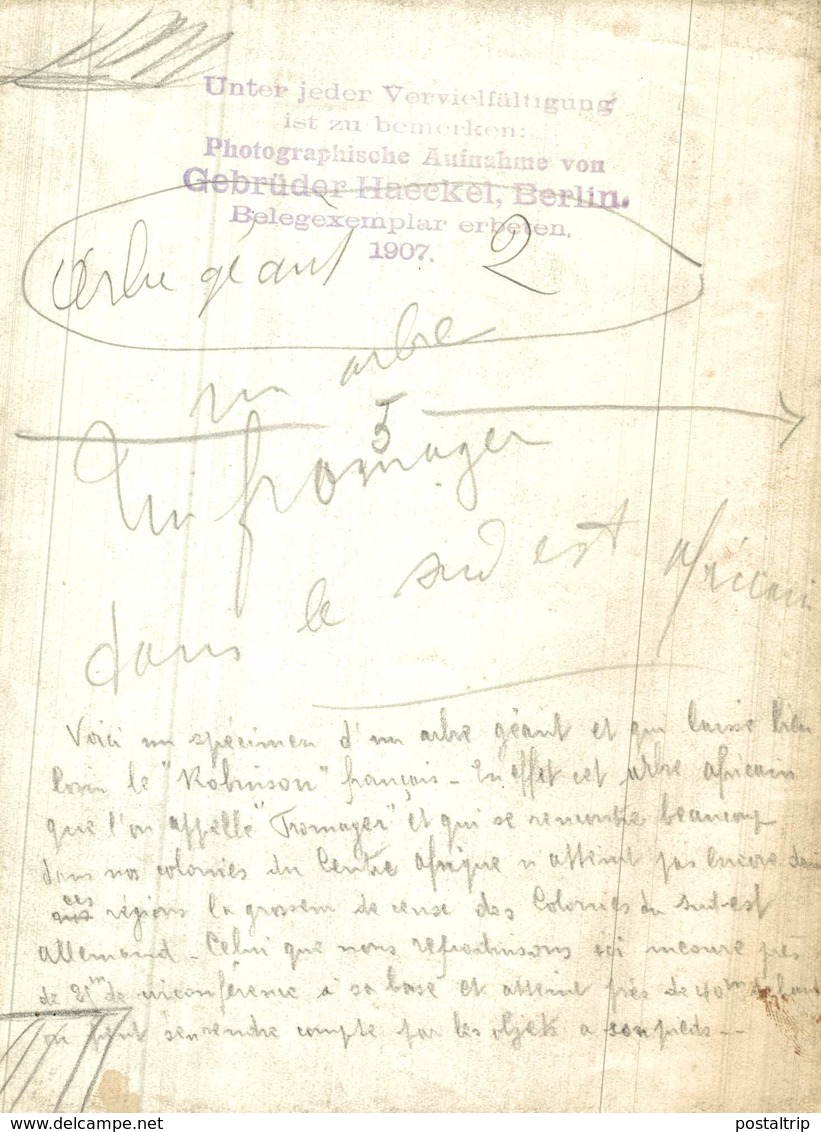 Unter jeder Vervielfältigung
ist zu bemerken:
Photographische Aufnahme von
Gebrüder Haeckel, Berlin.
Belegexemplar erbeten.
1907.
Arbre géant 2
un arbre
5
Un fromager
dans le sud est africain
Voici un spécimen d'un arbre géant et qui laisse bien
loin le "Robinson" français - En effet cet arbre africain
que l'on appelle "Fromager" et qui se rencontre beaucoup
dans nos colonies du Centre Afrique n'atteint pas encore dans
ces régions la grosseur de ceux des Colonies du Sud-est
allemand - Celui que nous reproduisons ici mesure près
de m de circonférence à sa base et atteint près de 40m de haut
on peut s'en rendre compte par les objets a son pieds - -
www.delcampe.net
postaltrip